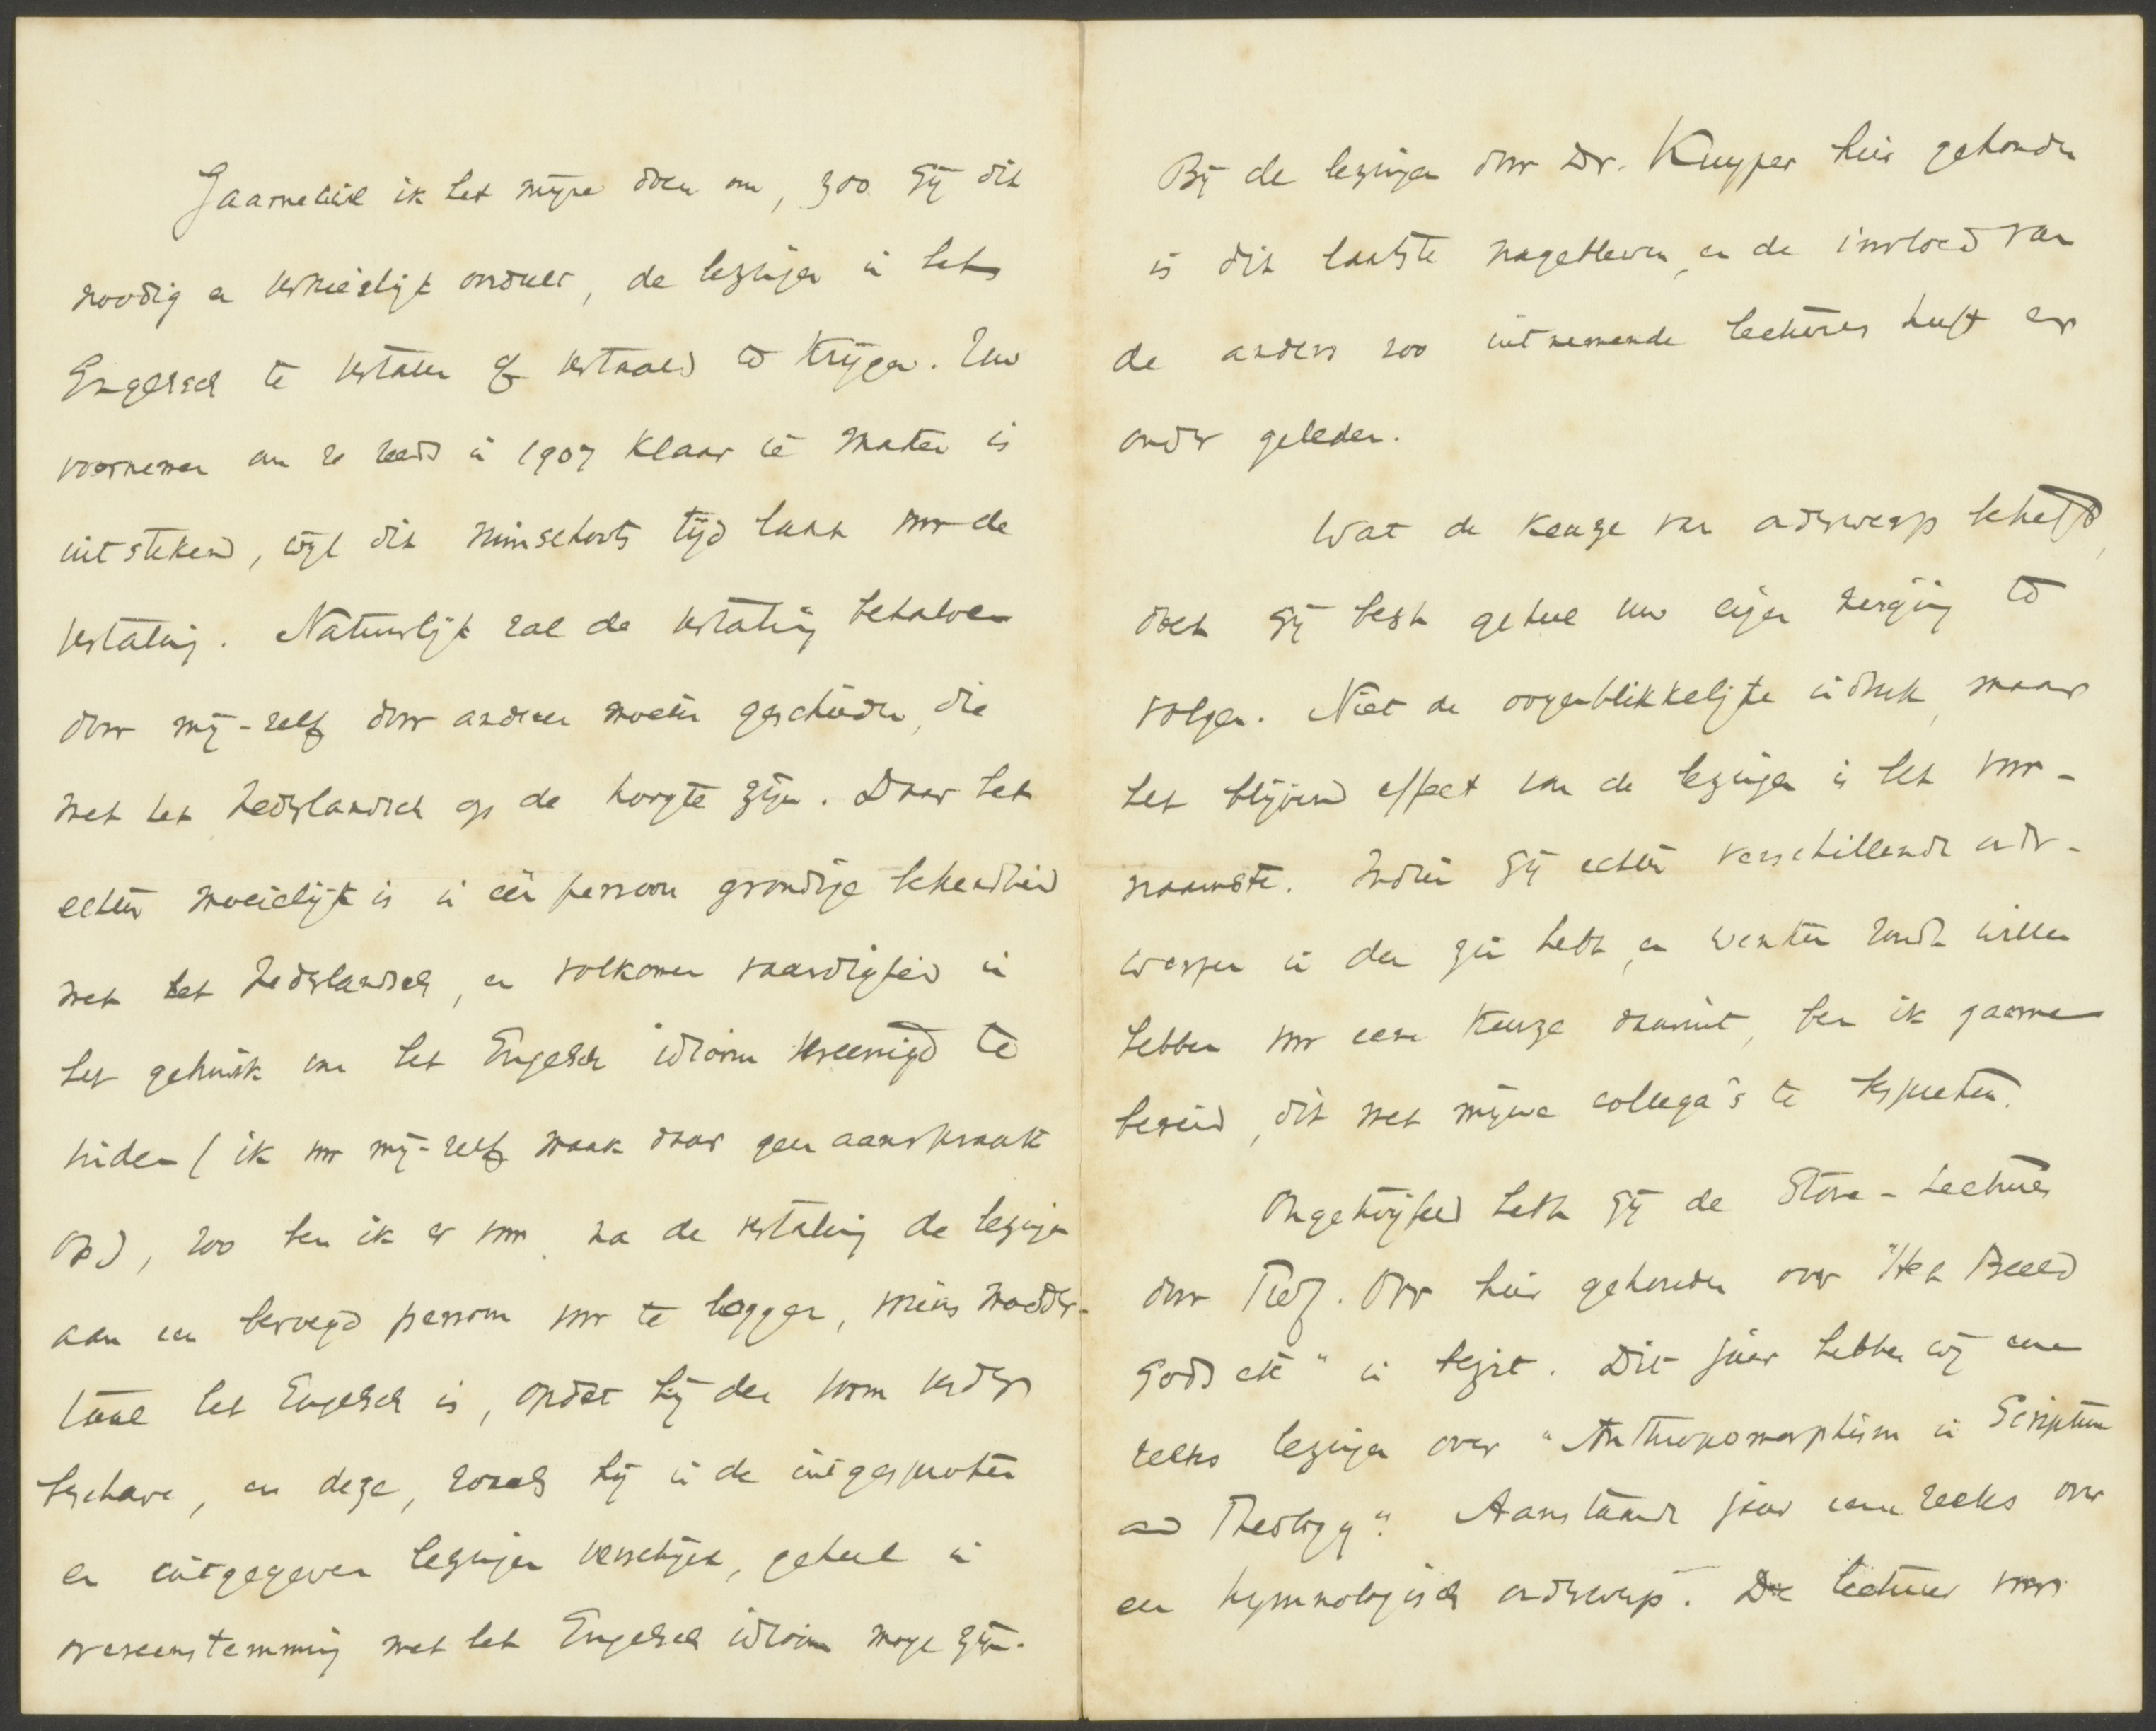 Gaarne wil ik het mijne doen om, zoo gij dit
noodig en verkieslijk oordeelt, de lezingen in het
Engelsch te vertalen of vertaald te krijgen. Uw
voornemen om ze reeds in 1907 klaar te maken is
uitstekend, wijl dit ruimschoots tijd laat voor de
vertaling. Natuurlijk zal de vertaling behalve
door mij-zelf door anderen moeten geschieden, die
met het Nederlandsch op de hoogte zijn. Daar het
echter moeielijk is in één persoon grondige bekendheid
met het Nederlandsch, en volkomen vaardigheid in
het gebruik van het Engelsch idioom vereenigd te
vinden (ik voor mij-zelf maak daar geen aanspraak
op), zoo ben ik er voor, na de vertaling de lezingen
aan een bevoegd persoon voor te leggen, wiens moeder-
taal het Engelsch is, opdat hij den vorm verder
beschave, en deze, zooals hij in de uitgesproken
en uitgegeven lezingen verschijnt, geheel in
overeenstemming met het Engelsch idioom moge zijn.
Bij de lezingen door Dr. Kuyper hier gehouden
is dit laatste nagebleven, en de invloed van
de anders zoo uitnemende lectures heeft er
onder geleden.
Wat de keuze van onderwerp betreft,
doet gij best geheel uw eigen neiging te
volgen. Niet de oogenblikkelijke indruk, maar
het blijvend effect van de lezingen is het voor-
naamste. Indien gij echter verschillende onder-
werpen in den zin hebt, en wenken zoudt willen
hebben voor eene keuze daaruit, ben ik gaarne
bereid, dit met mijne collega's te bespreken.
Ongetwijfeld hebt gij de Stone-Lectures
door Prof. Orr hier gehouden over "Het Beeld
Gods etc" in bezit. Dit jaar hebben wij eene
reeks lezingen over "Anthropomorphism in Scripture
and Theology". Aanstaande jaar eene reeks over
een hymnologisch onderwerp. De lectures voor